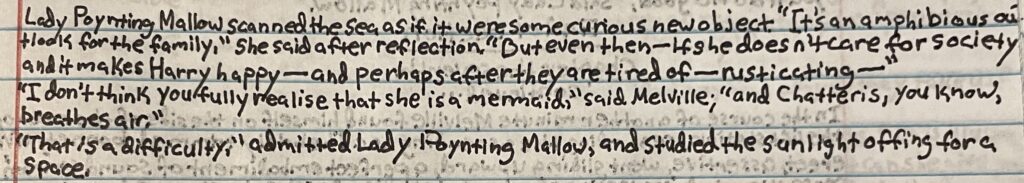 Lady Poynting Mallow scanned the sea as if it were some curious new object. "It's an amphibious ou
tlook for the family," she said after reflection. "But even then—if she doesn't care for society
and it makes Harry happy—and perhaps after they are tired of—rusticating—"
"I don't think you fully realise that she is a mermaid," said Melville; "and Chatteris, you know,
breathes air."
"That is a difficulty," admitted Lady Poynting Mallow, and studied the sunlight offing for a
space.